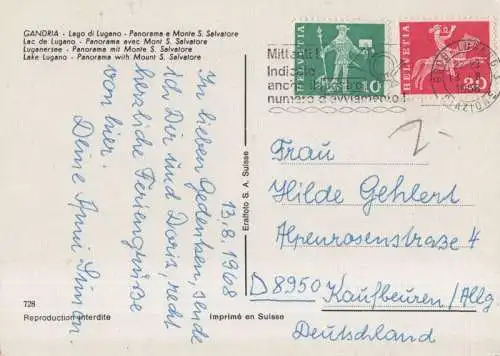 GANDRIA - Lago di Lugano - Panorama e Monte S. Salvatore
Lac de Lugano - Panorama avec Mont S. Salvatore
Luganersee - Panorama mit Monte S. Salvatore
Lake Lugano - Panorama with Mount S. Salvatore
13.8.1968
In lieben Gedenken, sende
ich Dir und Doris, recht
herzliche Feriengrüße
von hier.
Deine Anni Simon.
728
Reproduction interdite
Imprimé en Suisse
Eralfoto S. A. Suisse
HELVETIA
10
HELVETIA
20
Indicate
numero d'avviamento!
2-
Frau
Hilde Gehlert
Alpenrosenstraße 4
D 8950 Kaufbeuren/Allg
Deutschland